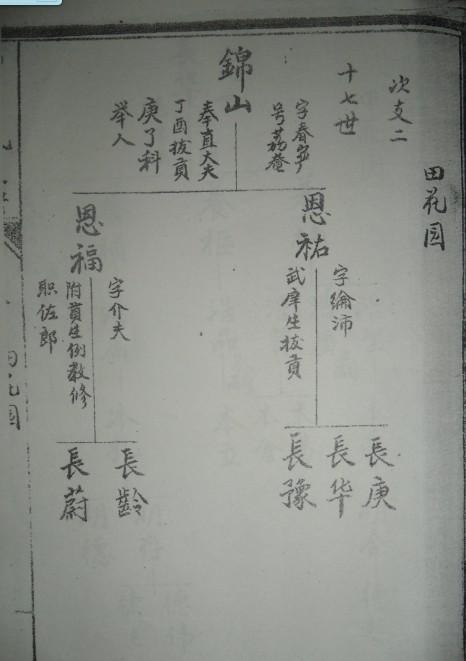 田花园
次支二
十七世
錦山
字春宇
号荔菴
奉直大夫
丁酉拔貢
庚子科
举人
恩祐
字綸沛
武庠生拔貢
恩福
字介夫
附貢生例敕修
职佐郎
長庚
長华
長豫
長齡
長蔚
田花园